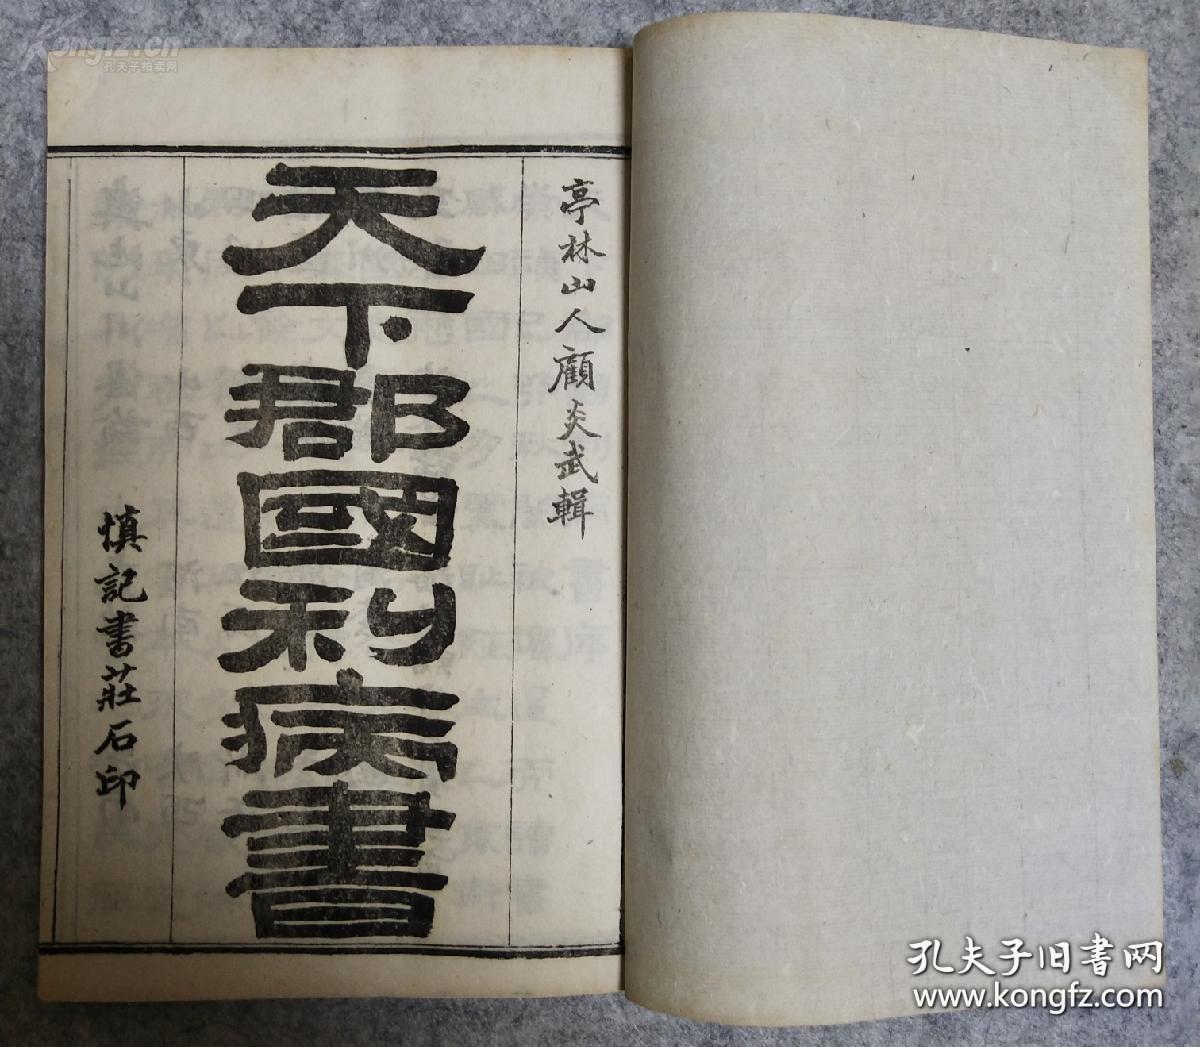 亭林山人顧炎武輯
天下郡國利病書
慎記書莊石印
Kongfz.cn
孔夫子拍卖网
孔夫子旧书网
www.kongfz.com